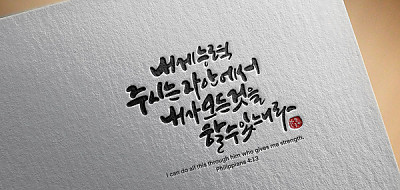 내게 능력
주시는 자 안에서
내가 모든 것을
할 수 있느니라
I can do all this through him who gives me strength.
Philippians 4:13